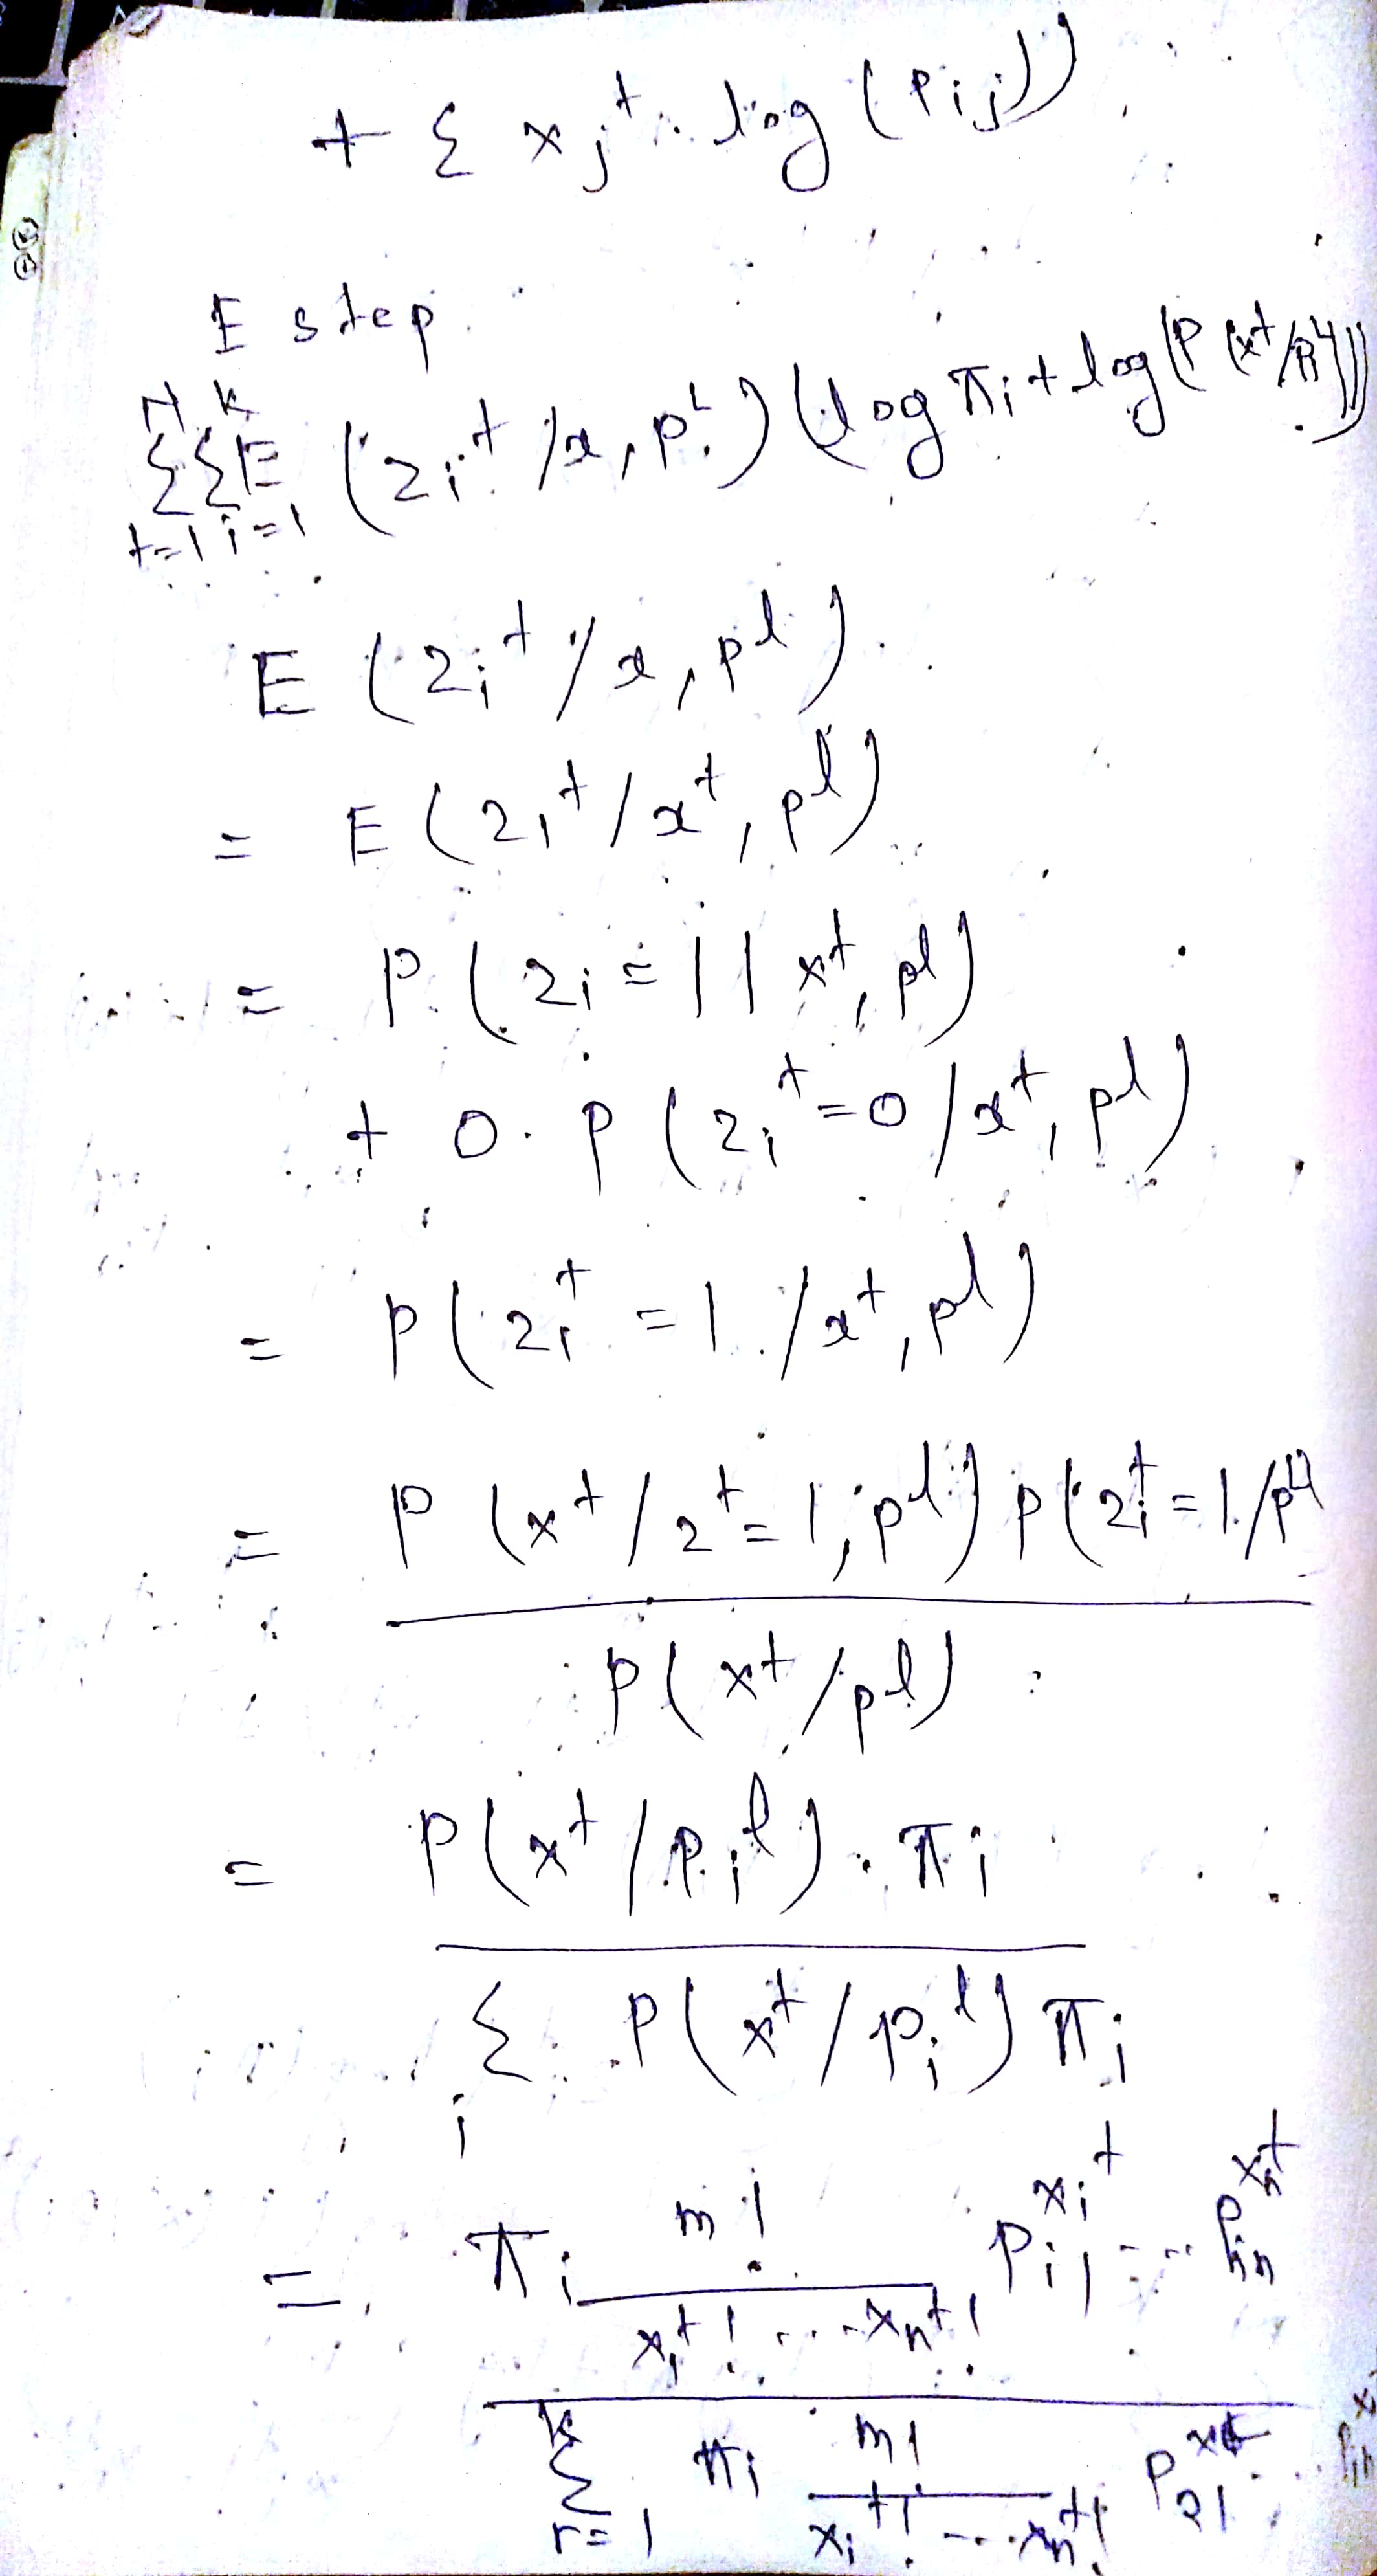 + Σ xⱼᵗ . log (Pᵢⱼ))
E step
N K
Σ Σ E (zᵢᵗ /x, pˡ) (log πᵢ + log (P (xᵗ/Pᵢˡ)))
t=1 i=1
E (zᵢᵗ / x, pˡ)
= E (zᵢᵗ / xᵗ, pˡ)
= P (zᵢ = 1 | xᵗ, pˡ)
+ 0. p (zᵢᵗ = 0 / xᵗ, pˡ)
= p (zᵢᵗ = 1 / xᵗ, pˡ)
= P (xᵗ / zᵗ = 1, pˡ) p (zᵢᵗ = 1 / pˡ)
p (xᵗ / pˡ)
= P (xᵗ / pᵢˡ) . πᵢ
Σ P (xᵗ / pᵢˡ) πᵢ
i
= πᵢ m! / xᵢᵗ! ... xₙᵗ! Pᵢ₁^xᵢᵗ ... Pᵢₙ^xₙᵗ
K
Σ πᵢ m! / xᵢᵗ! ... xₙᵗ! P₂₁^xᵗ ...
r=1